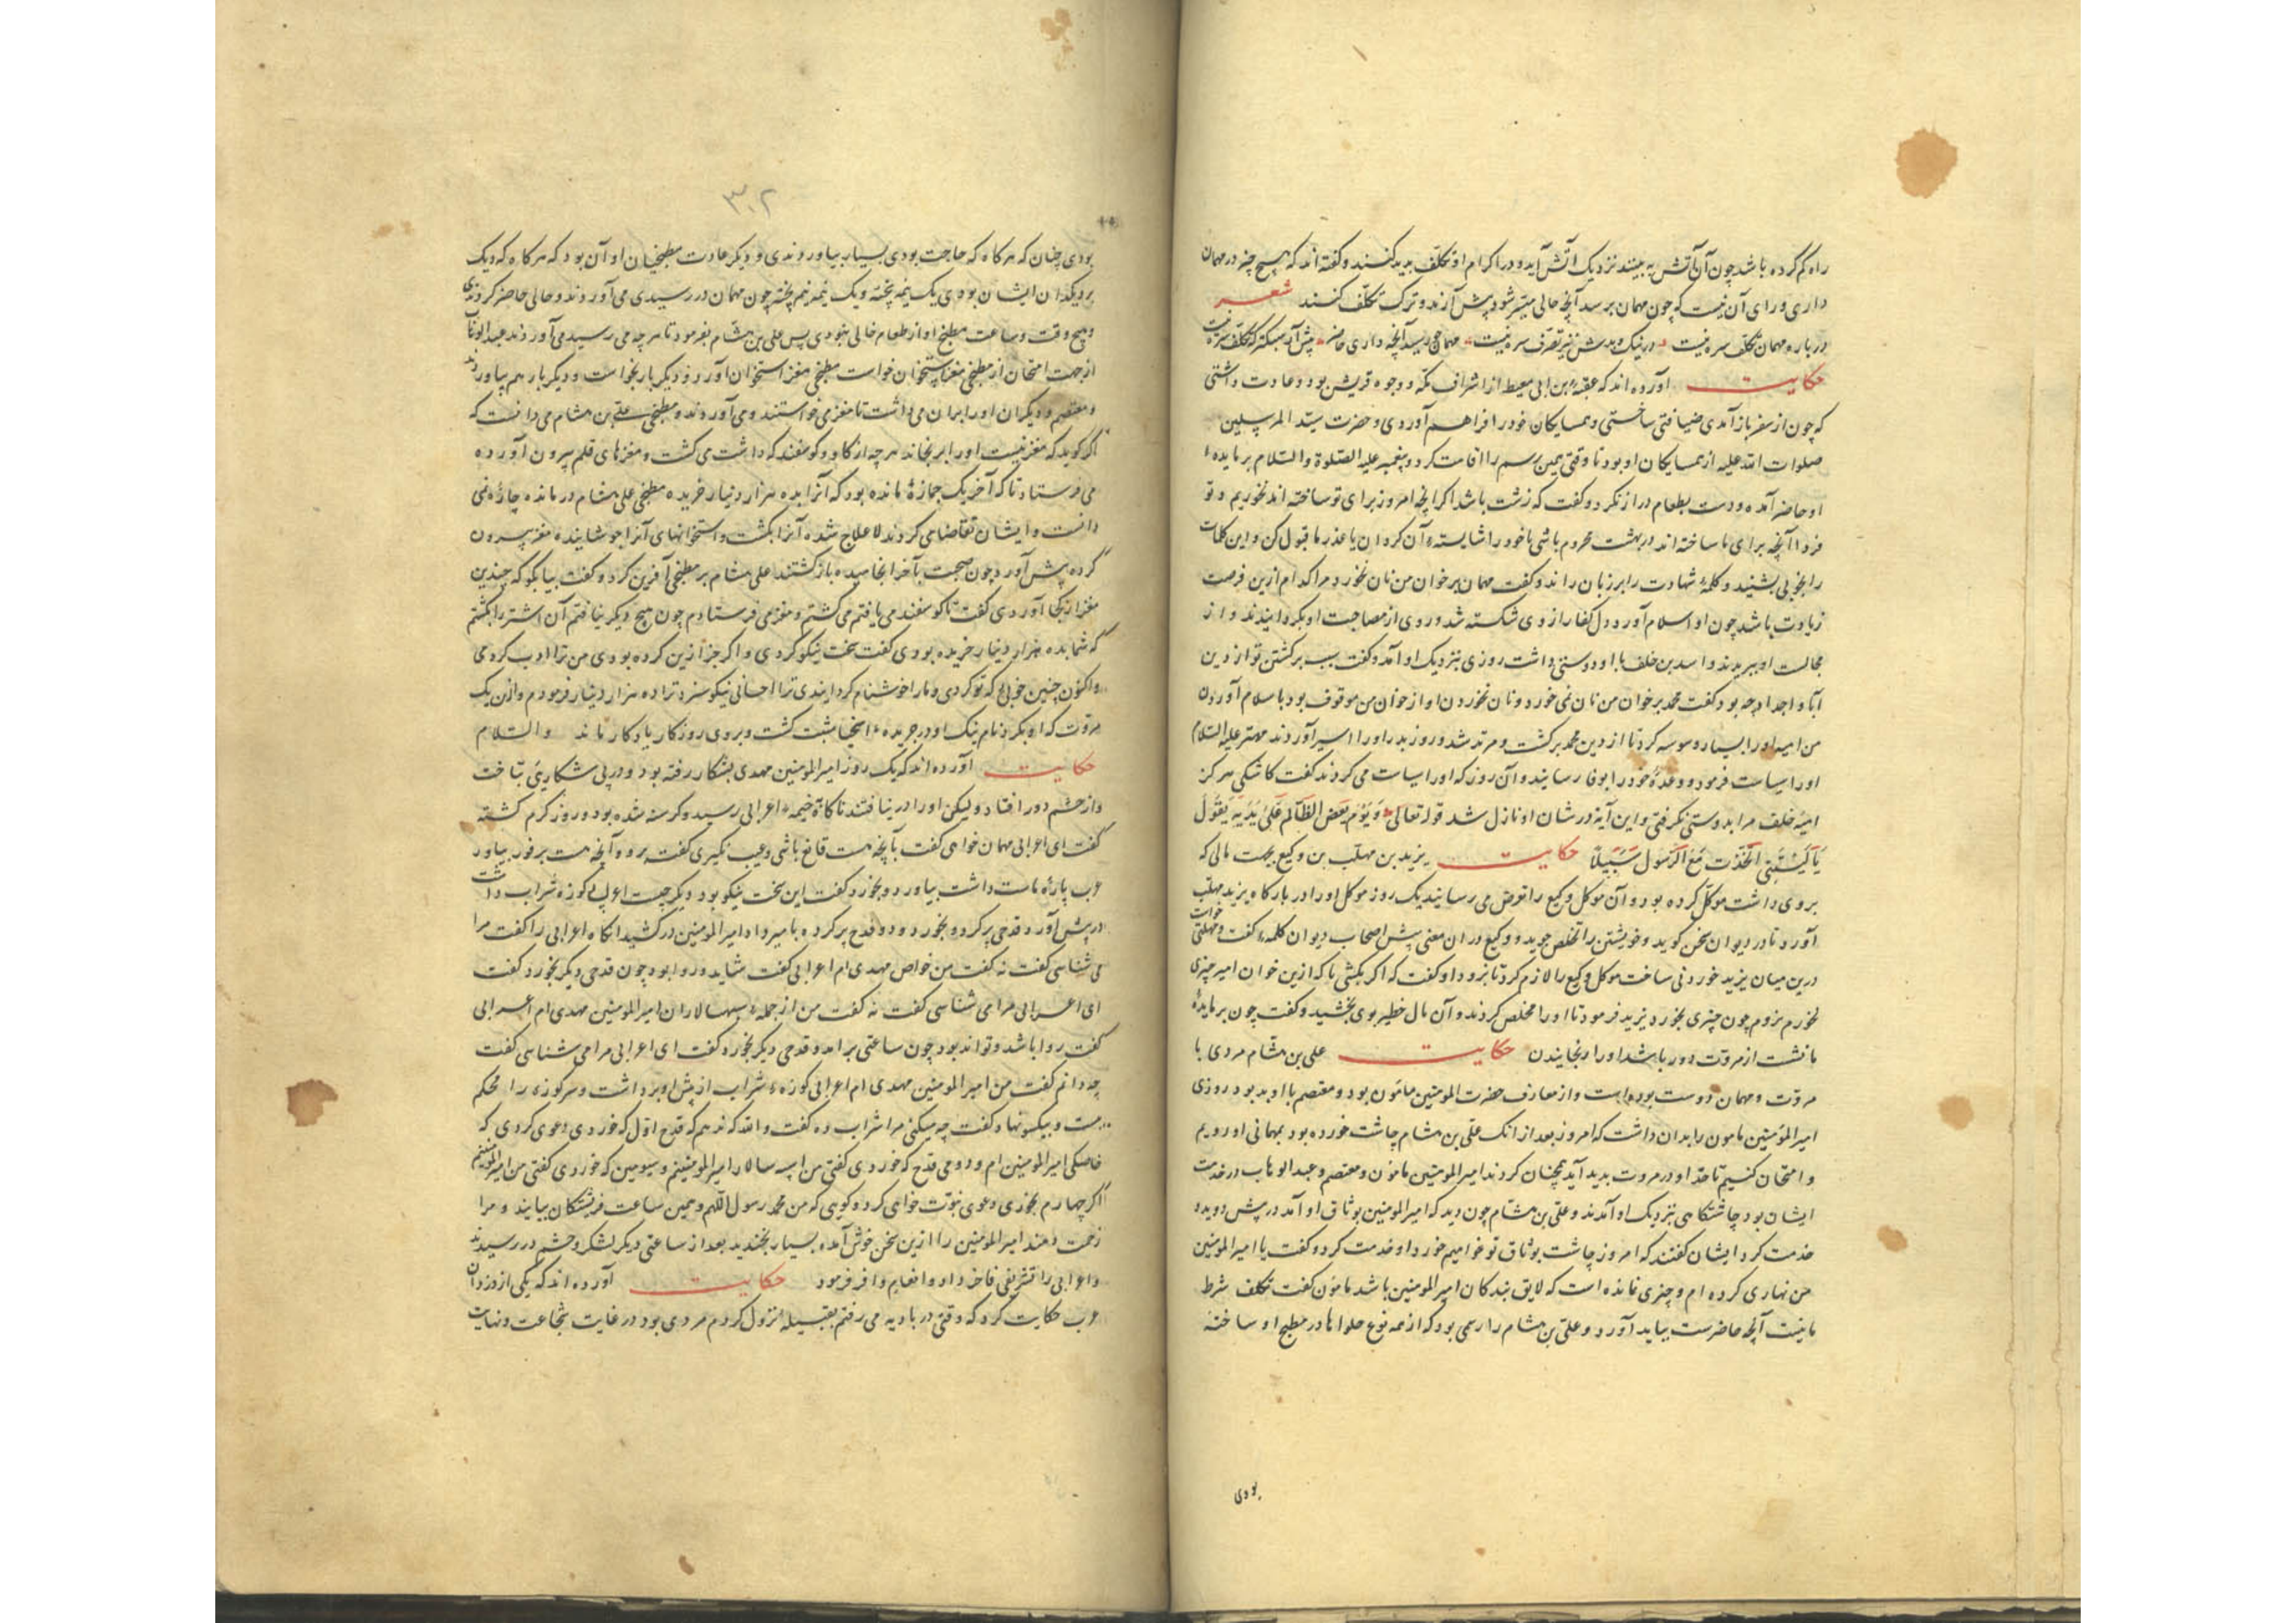 راه کم کرده باشد چون آن آتش به بینند نزدیک آتش آید و در اکرام او تکلف پدید کنند و کفته اند که هیچ چیز در مهمان
داری ورای آن نیست که چون مهمان برسد آنچه حالی میسر شود پیش آرند و ترک تکلف کنند شعر
در باره مهمان تکلف سره نیست در نیک و بدش نیز تصرف سره نیست مهمان چو رسید آنچه داری حاضر پیش آر سبکتر که تکلف سره نیست
حکایت آورده اند که عقبه بن ابی معیط از اشراف مکه و وجوه قریش بود و عادت داشتی
که چون از سفر باز آمدی ضیافتی ساختی و همسایکان خود را فراهم آوردی و حضرت سید المرسلین
صلوات الله علیه از همسایکان او بود تا وقتی همین رسم را اقامت کرد و پیغمبر علیه الصلوة والسلام بر مایده
او حاضر آمده و دست بطعام دراز نکرد و کفت که زشت باشد اکر آنچه امروز برای تو ساخته اند نخوریم و تو
فردا آنچه برای ما ساخته اند در بهشت محروم باشی یا خود را شایسته آن کردان یا عذر ما قبول کن و این کلمات
را بخوبی بشنید و کلمه شهادت را بر زبان راند و کفت مهمان بر خوان من نان نخورد مرا کدام ازین فرصت
زیادت باشد چون او اسلام آورد دل کفار از وی شکسته شد و روی از مصاحبت او بکردانیدند و از
مجالست او ببریدند و اسد بن خلف با او دوستی داشت روزی بنزدیک او آمد و کفت سبب برکشتن تو از دین
آبا و اجداد چه بود کفت محمد بر خوان من نان نمی خورد و نان نخوردن او از خوان من موقوف بود با سلام آوردن
من امیه او را بسیار وسوسه کرد تا از دین محمد برکشت و مرتد شد و روز بدر او را اسیر آوردند مهتر علیه السلام
او را سیاست فرمود و وعده خود را بوفا رسانید و آن روز که او را سیاست می کردند کفت کاشکی هرکز
امیه خلف مرا بدوستی نکرفتی و این آیة در شان او نازل شد قوله تعالی وَیَوْمَ یَعَضُّ الظَّالِمُ عَلَی یَدَیْهِ یَقُولُ
یَا لَیْتَنِی اتَّخَذْتُ مَعَ الرَّسُولِ سَبِیلًا حکایت یزید بن مهلب بن وکیع بجهت مالی که
بر وی داشت موکل کرده بود و آن موکل وکیع را تعوض می رسانید یک روز موکل او را در بارکاه یزید مهلب
آورد تا در دیوان سخن کوید و خویشتن را تخلص جوید و وکیع در ان معنی پیش اصحاب دیوان کلمه کفت و مهلتی خواست
درین میان یزید خوردنی ساخت موکل وکیع را لازم کرد تا برود او کفت که اکر بکشی تا که ازین خوان امیر چیزی
نخورم نروم چون چیزی بخورد یزید فرمود تا او را مخلص کردند و آن مال خطیر بوی بخشید و کفت چون بر مایده
ما نشست از مروت دور باشد او را رنجانیدن حکایت علی بن هشام مردی با
مروت و مهمان دوست بوده است و از معارف حضرت المومنین مامون بود و معتصم با او بد بود روزی
امیر المومنین مامون را بدان داشت که امروز بعد از انک علی بن هشام چاشت خورده بود بمهمانی او رویم
و امتحان کنیم تا حد او در مروت پدید آید همچنان کردند امیر المومنین مامون و معتصم و عبد الوهاب در خدمت
ایشان بود چاشتکاهی بنزدیک او آمدند و علی بن هشام چون دید که امیر المومنین بوثاق او آمد در پیش دوید و
خدمت کرد ایشان کفتند که امروز چاشت بوثاق تو خواهیم خورد او خدمت کرد و کفت یا امیر المومنین
من نهاری کرده ام و چیزی نمانده است که لایق بندکان امیر المومنین باشد مامون کفت تکلف شرط
ما نیست آنچه حاضرست بباید آورد و علی بن هشام را رسمی بود که از همه نوع حلواها در مطبخ او ساخته
بودی
۳۰۲
بودی چنان که هرکاه که حاجت بودی بسیار بیاوردندی و دیکر عادت مطبخیان او آن بود که هرکاه که دیک
بر دیکدان ایشان بودی یک نیمه پخته و یک نیمه نیم پخته چون مهمان در رسیدی می آوردند و حالی حاضر کردندی
و هیچ وقت و ساعت مطبخ او از طعام خالی نبودی پس علی بن هشام بفرمود تا هر چه می رسید می آوردند عبد الوهاب
از جهت امتحان از مطبخی مغز استخوان خواست مطبخی مغز استخوان آورد و دیکر بار بخواست و دیکر بار هم بیاوردند
و معتصم و دیکران او را بران می داشت تا مغز می خواستند و می آوردند و مطبخی علی بن هشام می دانست که
اکر کوید که مغز نیست او را برنجاند هر چه از کاو و کوسفند که داشت می کشت و مغزهای قلم بیرون آورده
می فرستاد تا که آخر یک جمازه مانده بود که آنرا بده هزار دینار خریده مطبخی علی هشام در مانده چاره نمی
دانست و ایشان تقاضا می کردند لا علاج شده آنرا بکشت و استخوانهای آنرا جوشانیده مغز بیرون
کرده پیش آورد چون صحبت بآخر انجامیده بازکشتند علی هشام بر مطبخی آفرین کرد و کفت بیا بکو که چندین
مغز از کجا آوردی کفت تا کوسفند می یافتم می کشتم و مغز می فرستادم چون هیچ دیکر نیافتم آن اشتر را بکشتم
که شما بده هزار دینار خریده بودی کفت سخت نیکو کردی و اکر جز ازین کرده بودی من ترا ادب کردمی
واکنون چنین خوابی که تو کردی و مارا خوشنام کردانیدی ترا احسانی نیکو سزد ترا ده هزار دینار فرمودم و ازن یک
مروت که او بکرد نام نیک او در جریده اسخیا مثبت کشت و بر وی روزکار یادکار ماند والسلام
حکایت آورده اند که یک روز امیر المومنین مهدی بشکار رفته بود و در پی شکاری بتاخت
و از حشم دور افتاد و لیکن او را در نیافتند ناکاه خیمه اعرابی رسید و کرسنه شده بود و روز کرم کشته
کفت ای اعرابی مهمان خواهی کفت بآنچه هست قانع باشی و عیب نکیری کفت برو و آنچه هست بر فور بیاور
عرب پاره ماست داشت بیاورد و بخورد کفت این سخت نیکو بود دیکر چیست اعرابی کوزه شراب داشت
در پیش آورد قدحی پر کرده بخورد و دو قدح پر کرده بامیر داد امیر المومنین در کشید انکاه اعرابی را کفت مرا
می شناسی کفت نه کفت من خواص مهدی ام اعرابی کفت شاید و روا بود چون قدحی دیکر بخورد کفت
ای اعرابی مرا می شناسی کفت نه کفت من از جمله سپهسالاران امیر المومنین مهدی ام اعرابی
کفت روا باشد و تواند بود چون ساعتی بر امد و قدحی دیکر بخورد کفت ای اعرابی مرا می شناسی کفت
چه دانم کفت من امیر المومنین مهدی ام اعرابی کوزه شراب از پیش او برداشت و سر کوزه را محکم
بست و بیکسو نهاد کفت چه میکنی مرا شراب ده کفت والله که ندهم که قدح اول که خوردی دعوی کردی که
خاصکی امیر المومنین ام و دومی قدح که خوردی کفتی من اسپه سالار امیر المومنینم و سیومین که خوردی کفتی من امیر المومنینم
اکر چهارم بخوری دعوی نبوت خواهی کرد و کویی که من محمد رسول اللهم و همین ساعت فریشتکان بیایند و مرا
زحمت دهند امیر المومنین را ازین سخن خوش آمده بسیار بخندید بعد از ساعتی دیکر لشکر و حشم در رسیدند
و اعرابی را تشریفی فاخر داد و انعام وافر فرمود حکایت آورده اند که یکی از دزدان
عرب حکایت کرد که وقتی در بادیه می رفتم بقبیله نزول کردم مردی بود در غایت شجاعت و نهایت